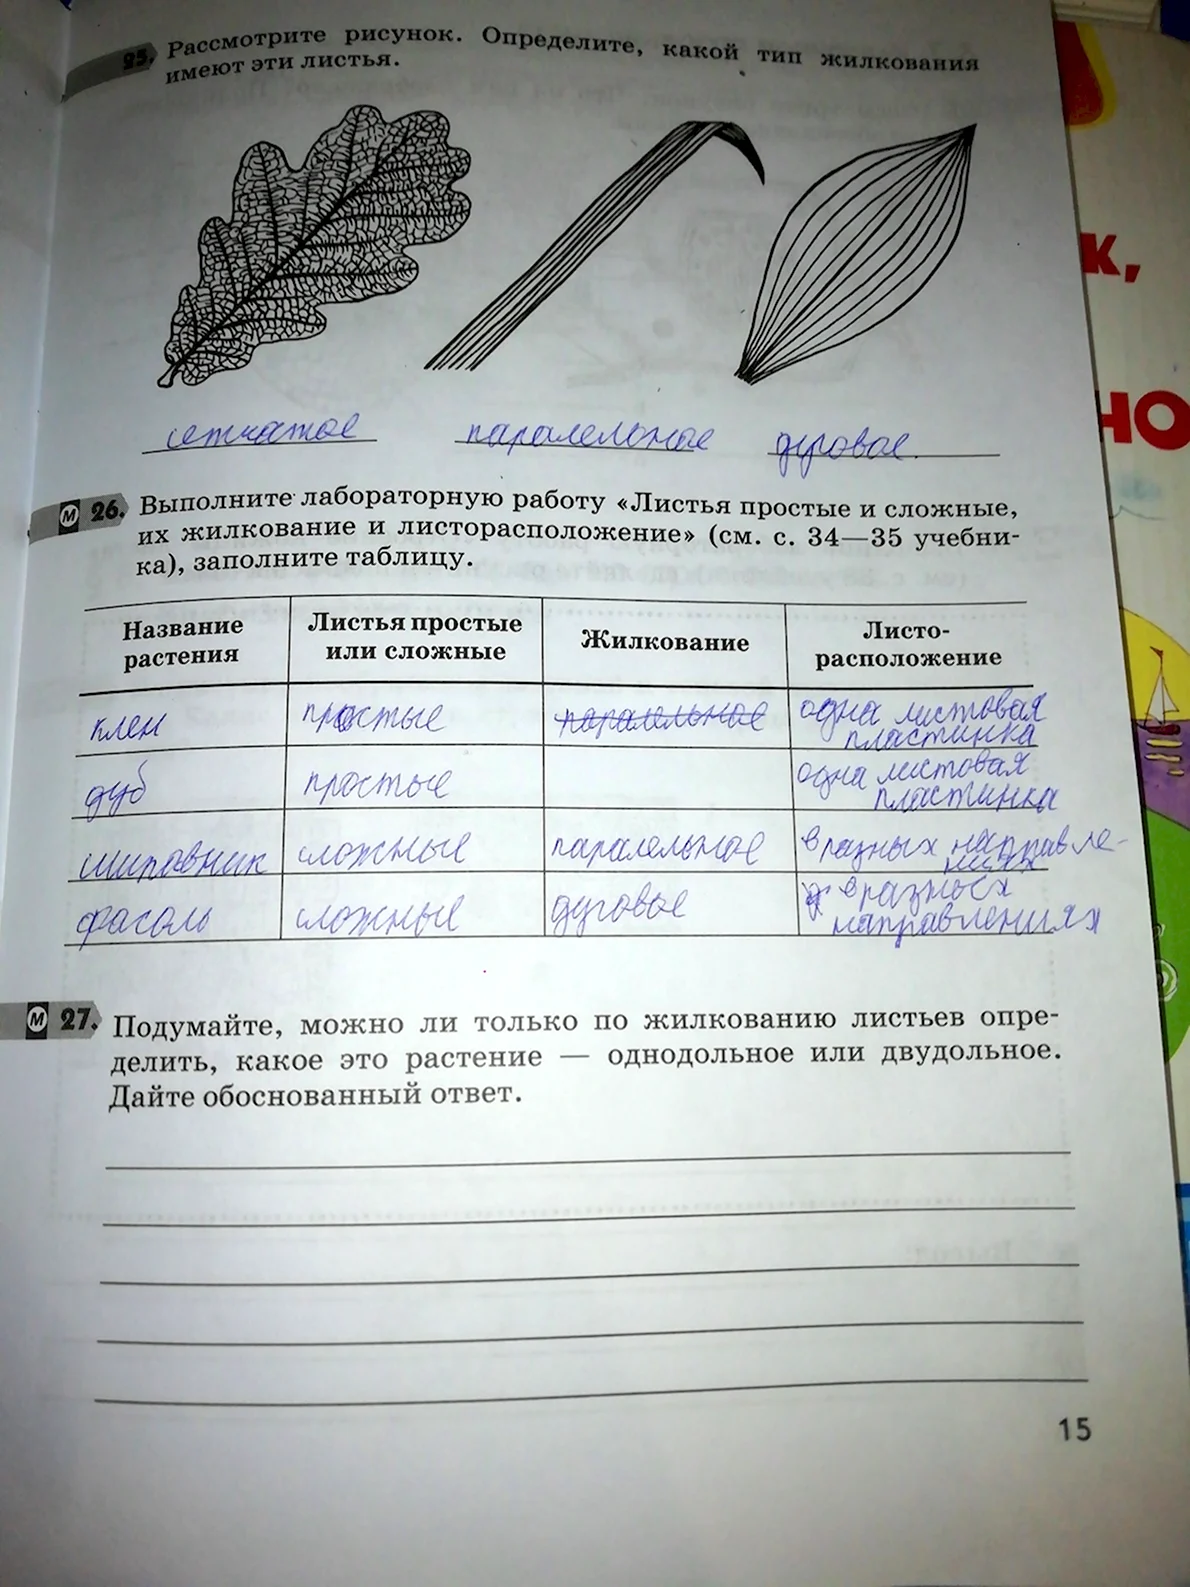 25. Рассмотрите рисунок. Определите, какой тип жилкования
имеют эти листья.
сетчатое паралельное дуговое.
М 26. Выполните лабораторную работу «Листья простые и сложные,
их жилкование и листорасположение» (см. с. 34—35 учебни-
ка), заполните таблицу.
Название растения Листья простые или сложные Жилкование Листо-расположение
клен простые паралельное одна листовая
пластинка
дуб простые одна листовая
пластинка
шиповник сложные паралельное в разных направле-
ниях
фасоль сложные дуговые в разных
направлениях
М 27. Подумайте, можно ли только по жилкованию листьев опре-
делить, какое это растение — однодольное или двудольное.
Дайте обоснованный ответ.
15
К,
НО